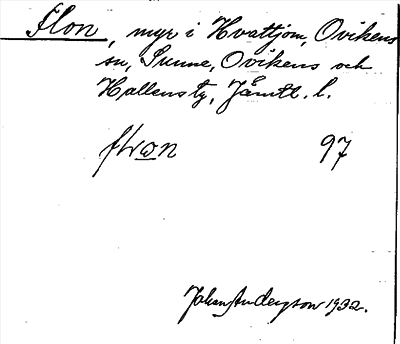 Flon, myr i Hvattjom, Ovikens
sn, Sunne, Ovikens och
Hallens tg, Jämtl. l.
97
Johan Anderson 1932.